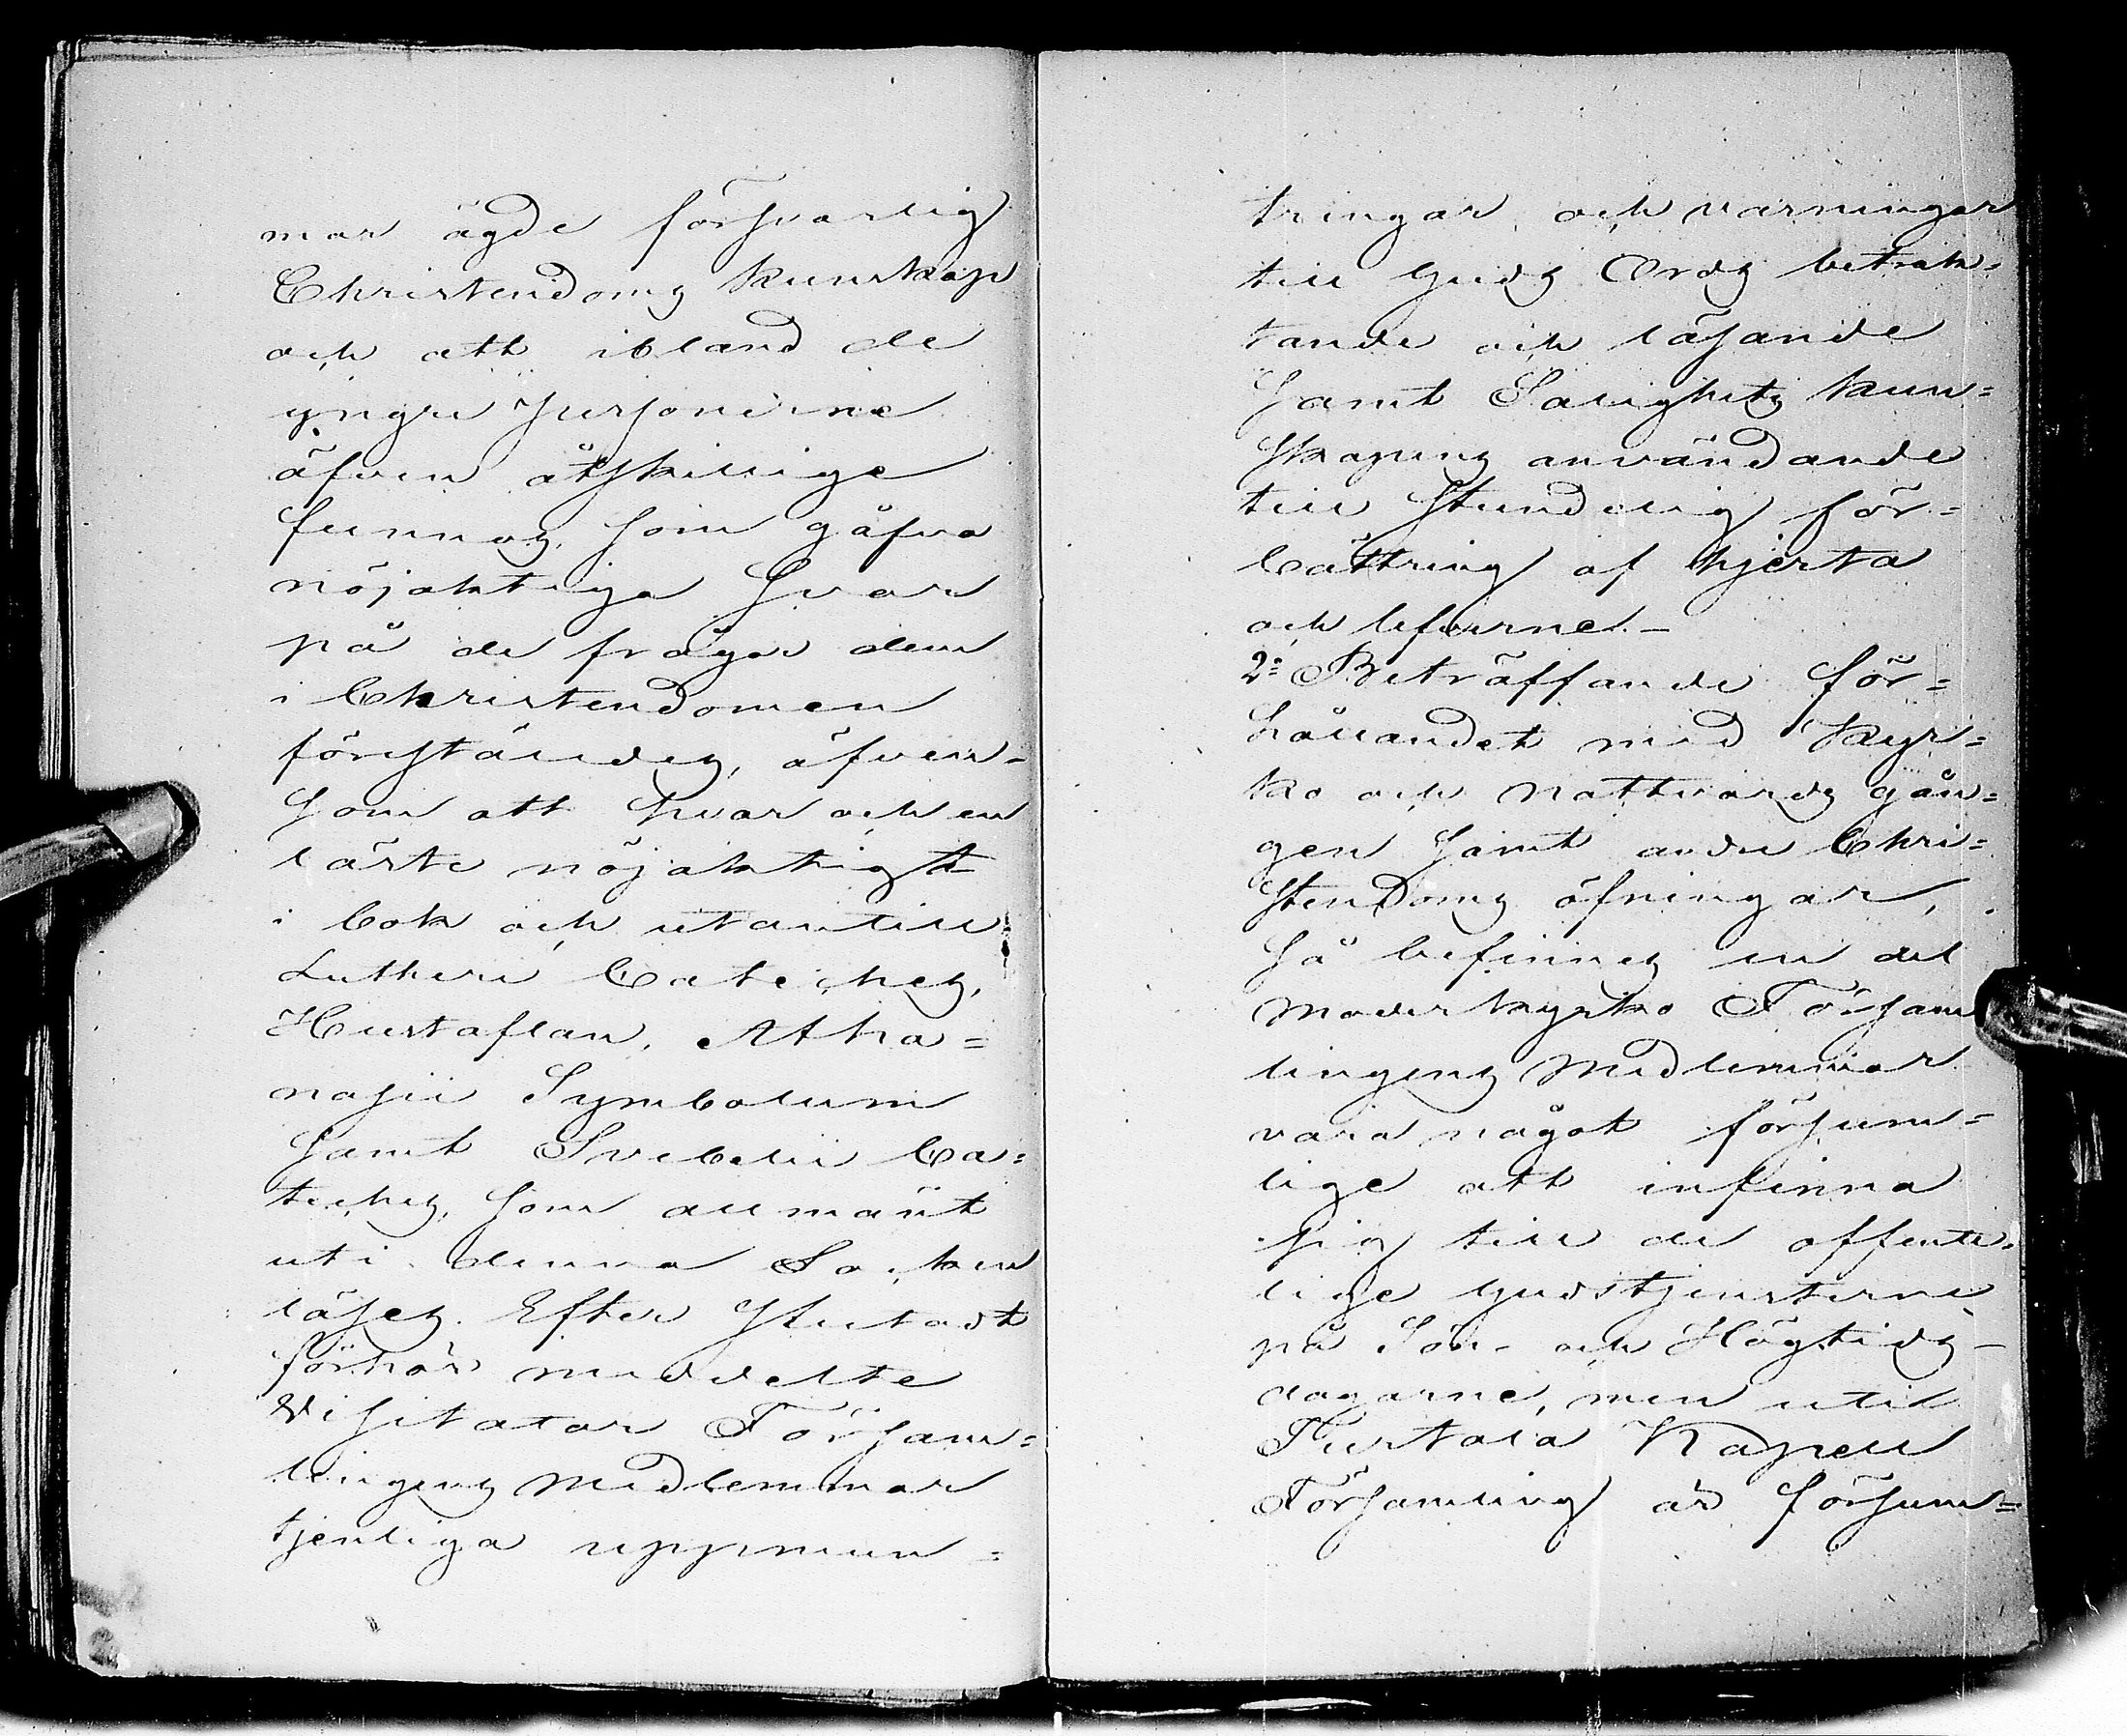 mar ägde försvarlig
Christendoms kunskap
och att ibland de
yngre personerne
äfven åtskillige
funnos, som gåfvo
nöjaktiga svar
på de frågor dem
i Christendomen
förestäldes, äfven-
som att hvar och en
läste nöjaktigt
i bok och utantill
Lutheri Cateches,
Hustaflan, Atha=
nasii Symbolum
samt Svebelii Ca=
teches, som allmänt
uti denna Socken
läses. Efter slutadt
förhör meddelte
Visitator Försam=
lingens medlemmar
tjenliga uppmun=
tringar och varningar
till Guds Ords betrak=
tande och läsande
samt Salighets kun=
skapens användande
till stundelig för=
bättring af hjerta
och lefverne.-
2:o Beträffande för=
hållandet med kyr=
ko och nattvards gån=
gen samt andre Chri=
stendoms öfningar,
så befinnes en del
moderkyrko Försam
lingens medlemmar
vara något försum=
lige att infinna
sig till de offente=
lige gudstjensterne
på Sön- och Högtids-
dagarne, men uti
Turtola Kapell
Församling är försum=